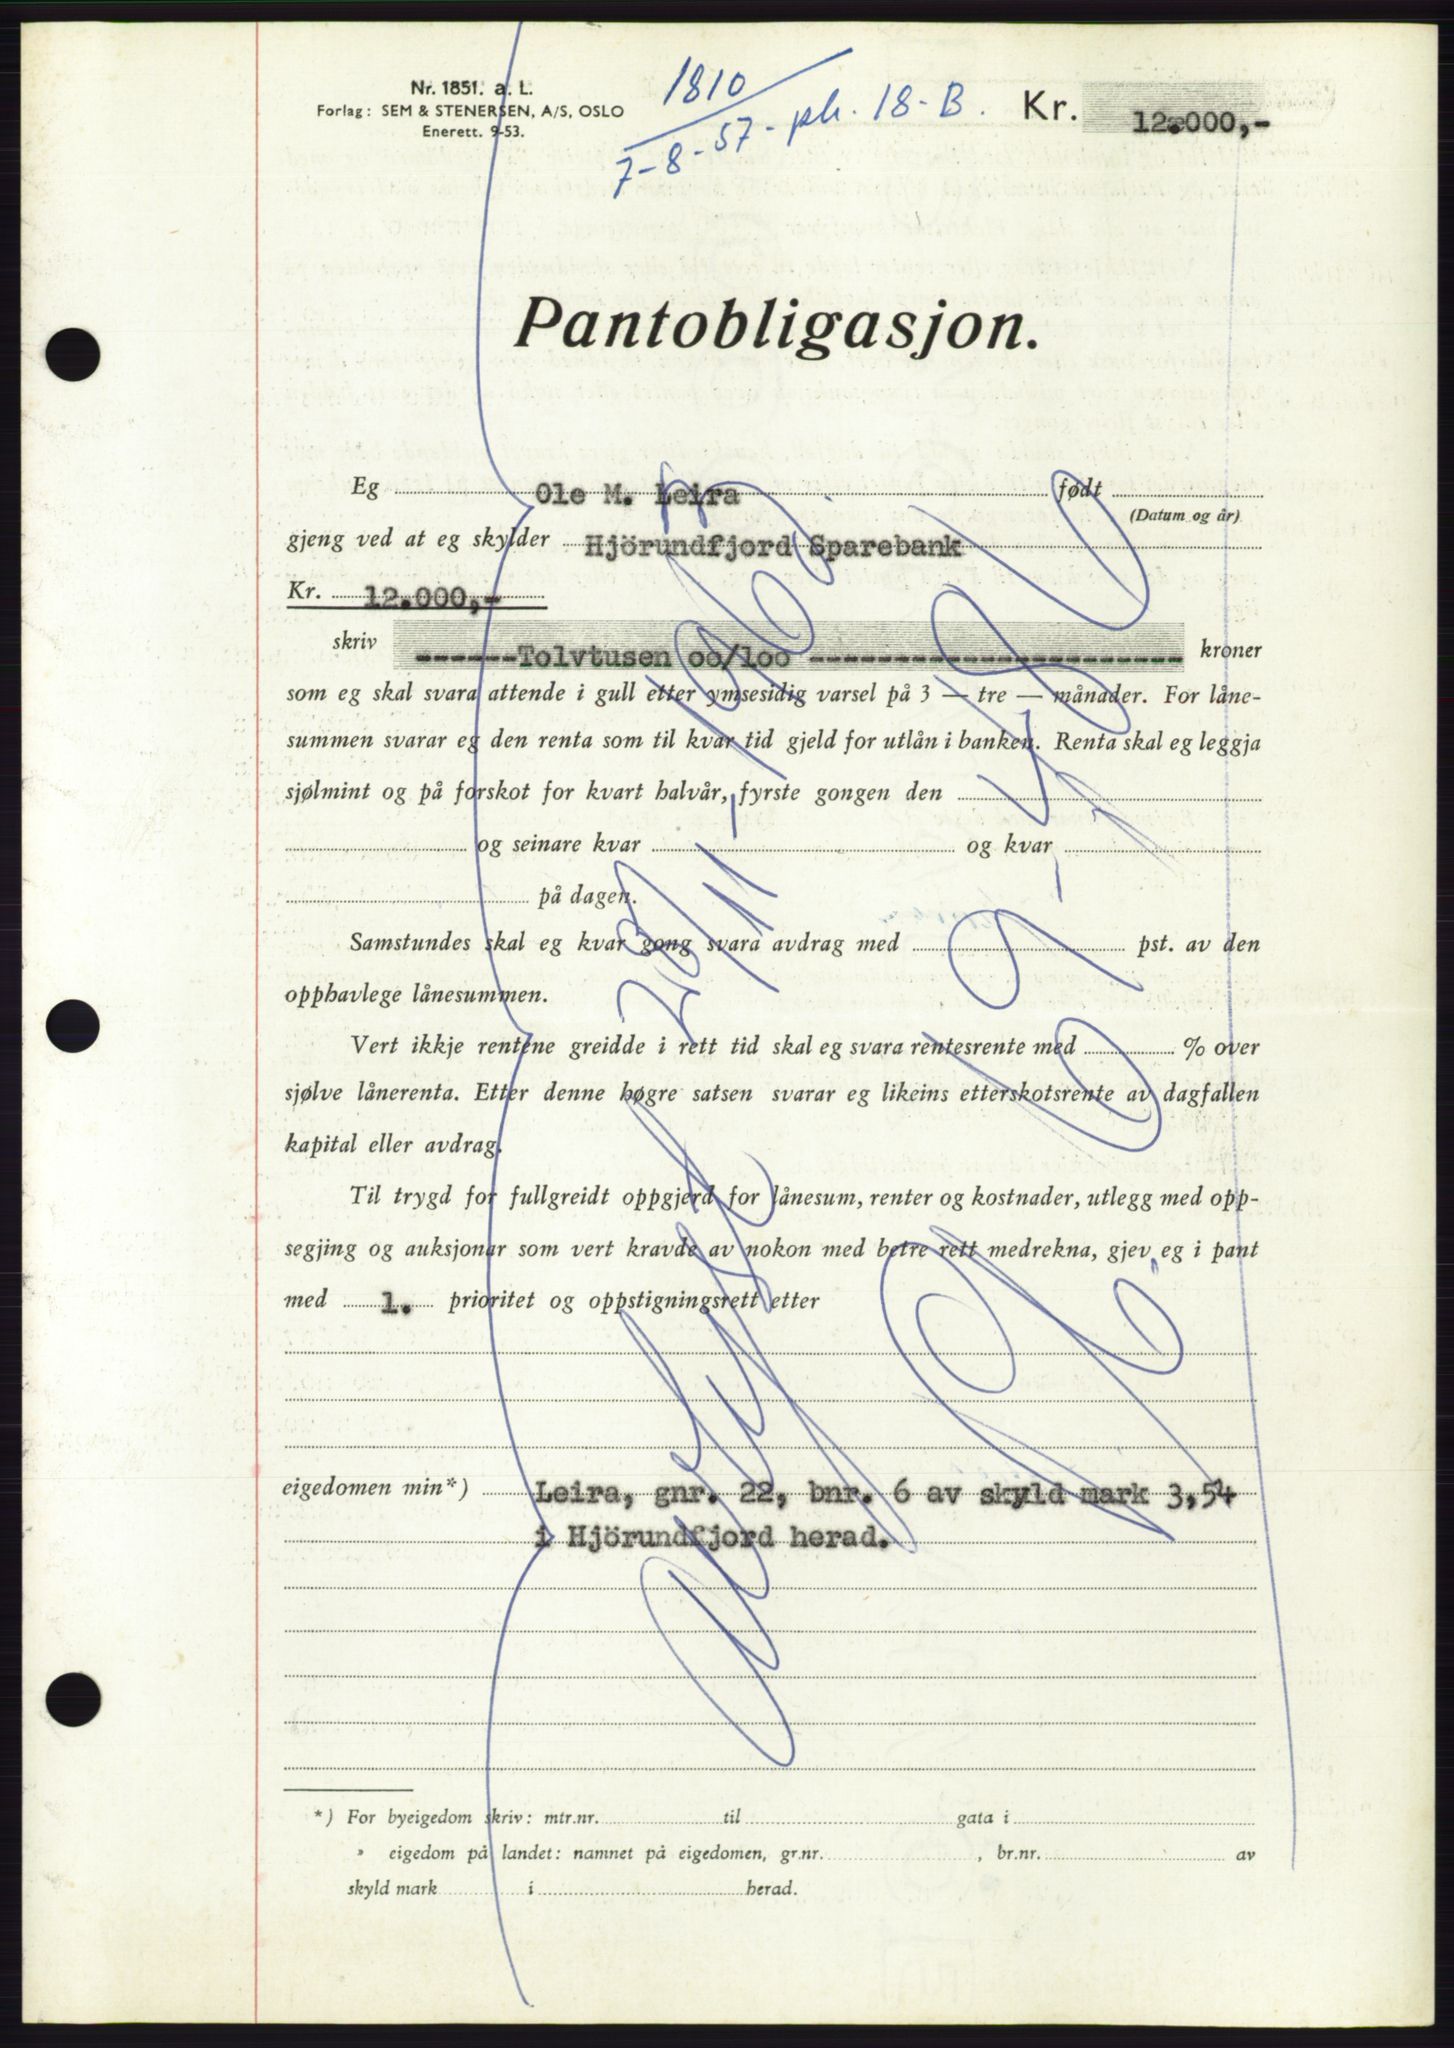 Nr. 1851. a. L.
Forlag: SEM & STENERSEN, A/S, OSLO
Enerett. 9-53.
1810
7-8-57- pk. 18-B.
Kr. 12.000,-
Pantobligasjon.
Eg Ole M. Leira født
(Datum og år)
gjeng ved at eg skylder Hjörundfjord Sparebank
Kr. 12.000,-
skriv ------Tolvtusen oo/loo ---------------------- kroner
som eg skal svara attende i gull etter ymsesidig varsel på 3 — tre — månader. For låne-
summen svarar eg den renta som til kvar tid gjeld for utlån i banken. Renta skal eg leggja
sjølmint og på forskot for kvart halvår, fyrste gongen den
og seinare kvar og kvar
på dagen.
Samstundes skal eg kvar gong svara avdrag med pst. av den
opphavlege lånesummen.
Vert ikkje rentene greidde i rett tid skal eg svara rentesrente med % over
sjølve lånerenta. Etter denne høgre satsen svarar eg likeins etterskotsrente av dagfallen
kapital eller avdrag.
Til trygd for fullgreidt oppgjerd for lånesum, renter og kostnader, utlegg med opp-
segjing og auksjonar som vert kravde av nokon med betre rett medrekna, gjev eg i pant
med 1. prioritet og oppstigningsrett etter
eigedomen min*) Leira, gnr. 22, bnr. 6 av skyld mark 3,54
i Hjörundfjord herad.
*) For byeigedom skriv: mtr.nr. til gata i
» eigedom på landet: namnet på eigedomen, gr.nr. , br.nr. av
skyld mark i herad.
avlyst 29/11-1963